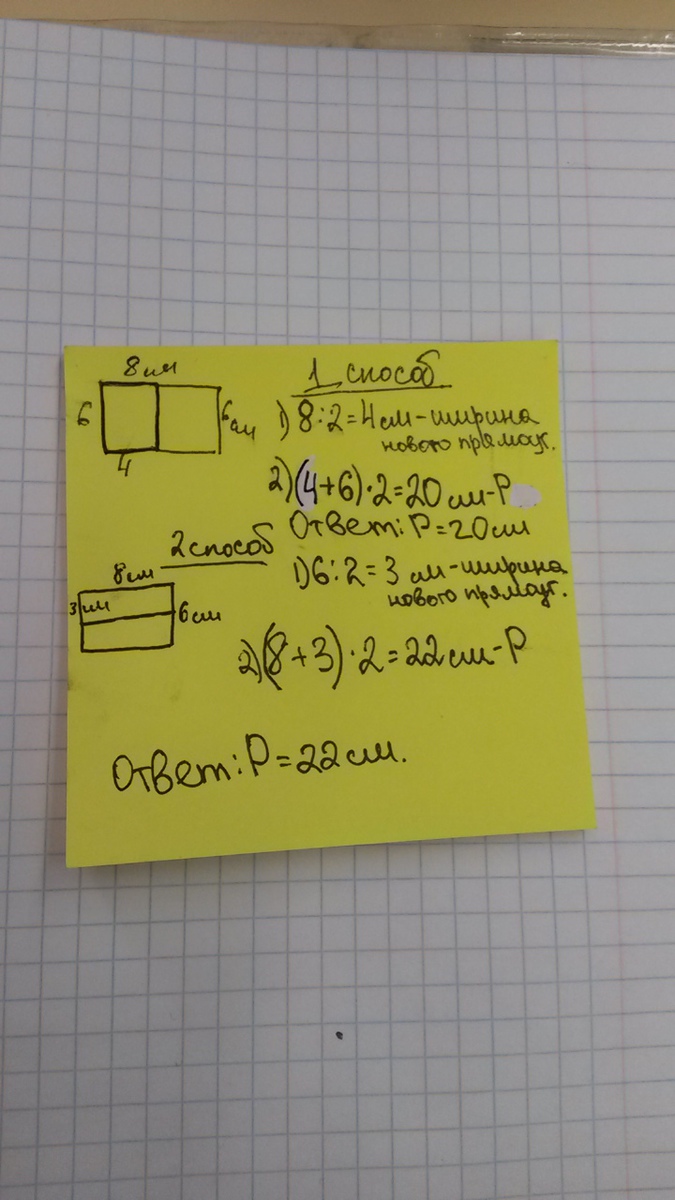 8см
6
6см
4
1 способ
1) 8:2=4см-ширина
нового прямоуг.
2)(4+6)·2=20см-Р
Ответ: Р=20см
2 способ
8см
3см
6см
1)6:2=3 см-ширина
нового прямоуг.
2)(8+3)·2=22см-Р
Ответ: Р=22см.